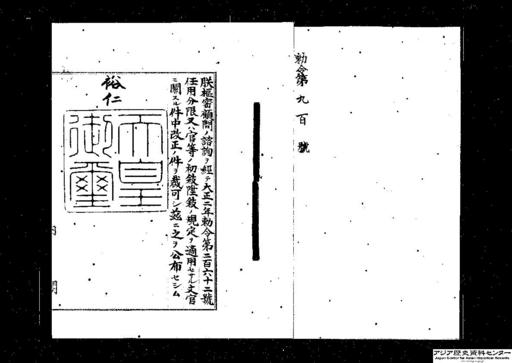 勅令第九百號
朕樞密顧問ノ諮詢ヲ經テ大正二年勅令第二百六十二號
任用分限又ハ官等ノ初敍陞敍ノ規定ヲ適用セサル文官
ニ關スル件中改正ノ件ヲ裁可シ茲ニ之ヲ公布セシム
裕仁
天皇御璽
アジア歴史資料センター
Japan Center for Asian Historical Records